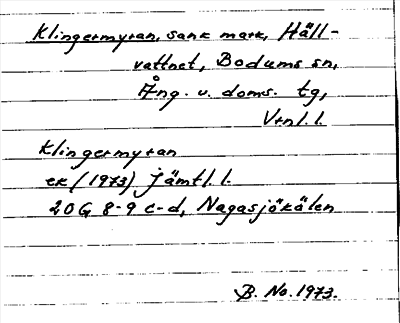 Klingermyran, sank mark, Häll-
vattnet, Bodums sn,
Ång. v. doms. tg,
Vtnl. l.
Klingermyran
ek (1973) Jämtl. l.
20G 8-9 c-d, Nagasjökälen
B. No. 1973.